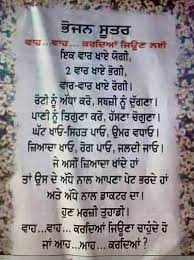 ਭੋਜਨ ਸੂਤਰ
ਵਾਹ...ਵਾਹ... ਕਰਦਿਆਂ ਜਿਊਣ ਲਈ
ਇਕ ਵਾਰ ਖਾਏ ਯੋਗੀ,
2 ਵਾਰ ਖਾਏ ਭੋਗੀ,
ਵਾਰ-ਵਾਰ ਖਾਏ ਰੋਗੀ,
ਰੋਟੀ ਨੂੰ ਅੱਧਾ ਕਰੋ, ਸਬਜ਼ੀ ਨੂੰ ਦੁੱਗਣਾ।
ਪਾਣੀ ਨੂੰ ਤਿਗੁਣਾ ਕਰੋ, ਹੱਸਣਾ ਚੋਗੁਣਾ।
ਘੱਟ ਖਾਓ-ਸਿਹਤ ਪਾਓ, ਉਮਰ ਵਧਾਓ।
ਜ਼ਿਆਦਾ ਖਾਓ, ਰੋਗ ਪਾਓ, ਜਲਦੀ ਜਾਓ।
ਜੇ ਅਸੀਂ ਜ਼ਿਆਦਾ ਖਾਂਦੇ ਹਾਂ
ਤਾਂ ਉਸ ਦੇ ਅੱਧੇ ਨਾਲ ਆਪਣਾ ਪੇਟ ਭਰਦੇ ਹਾਂ
ਅਤੇ ਅੱਧੇ ਨਾਲ ਡਾਕਟਰ ਦਾ।
ਹੁਣ ਮਰਜ਼ੀ ਤੁਹਾਡੀ।
ਵਾਹ...ਵਾਹ... ਕਰਦਿਆਂ ਜਿਊਣਾ ਚਾਹੁੰਦੇ ਹੋ
ਜਾਂ ਆਹ...ਆਹ... ਕਰਦਿਆਂ ?